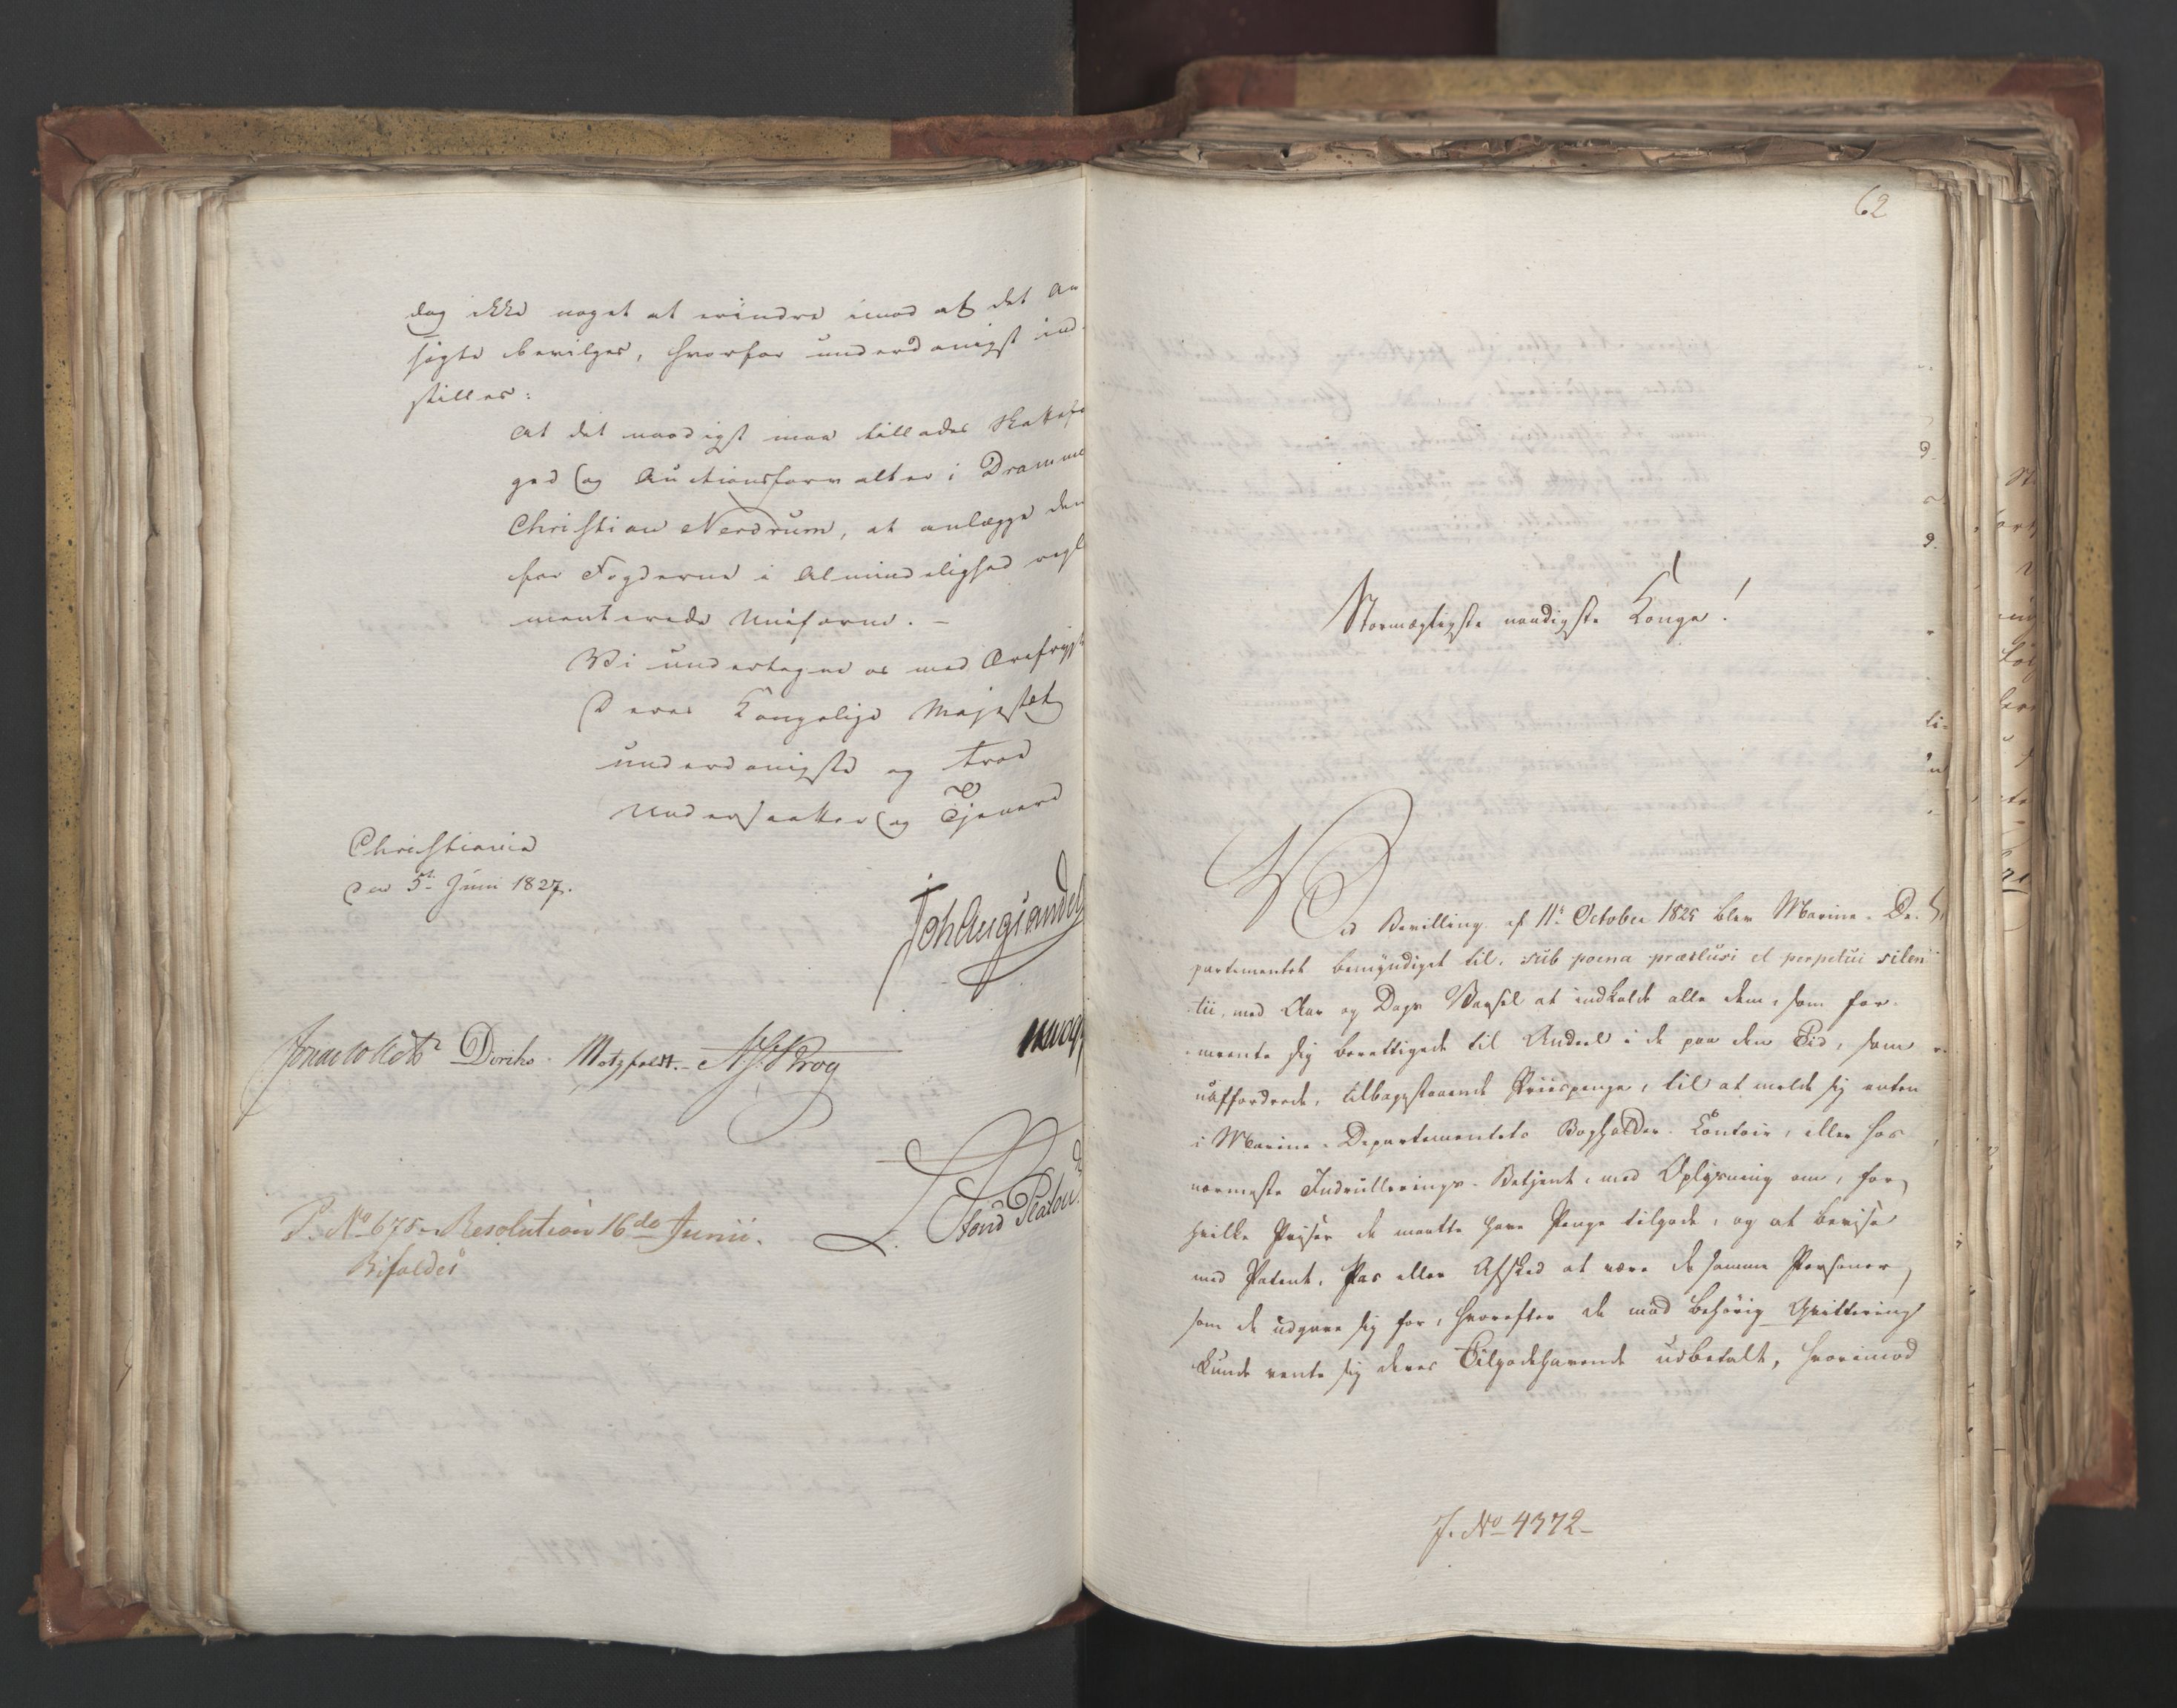 dog ikke noget at erindre imod at det an
søgte bevilges, hvorfor underdanigst ind-
stilles:
At det naadigst maa tillades Skattefo
ged og Auctionsforvalter i Dramme
Christian Nerdrum, at anlægge den
for Fogderne i Almindelighed regle
menterede Uniform. -
Vi undertegne os med Ærefrygt
Deres Kongelige Majestæt
underdanigste og troe
Undersaatter og Tjenere
Christiania
den 5te Juni 1827.
Joh Aug Sandels
Jonas Collett Diriks. Motzfeldt. - Krog
P. No 675. Resolution 16de Junii.
Bifaldes
62
Stormægtigste naadigste Konge!
Ved Bevilling af 11te October 1825 blev Marine-De-
partementet bemyndiget til, sub poena præclusi et perpetui silen
tii, med Aar og Dags Varsel at indkalde alle dem, som for-
meente sig berettigede til Andeel i de paa den Tid, som
uaffordrede, tilbagestaaende Priispenge, til at melde sig enten
i Marine-Departementets Bogholder-Contoir, eller hos
nærmeste Indrullerings-Betjent, med Oplysning om, for
hvilke Priser de maatte have Penge tilgode, og at bevise
med Patent, Pas eller Afsked at være de samme Personer,
som de udgave sig for, hvorefter de mod behørig Qvittering
kunde vente sig deres Tilgodehavende udbetalt, hvorimod
J. No 4372-